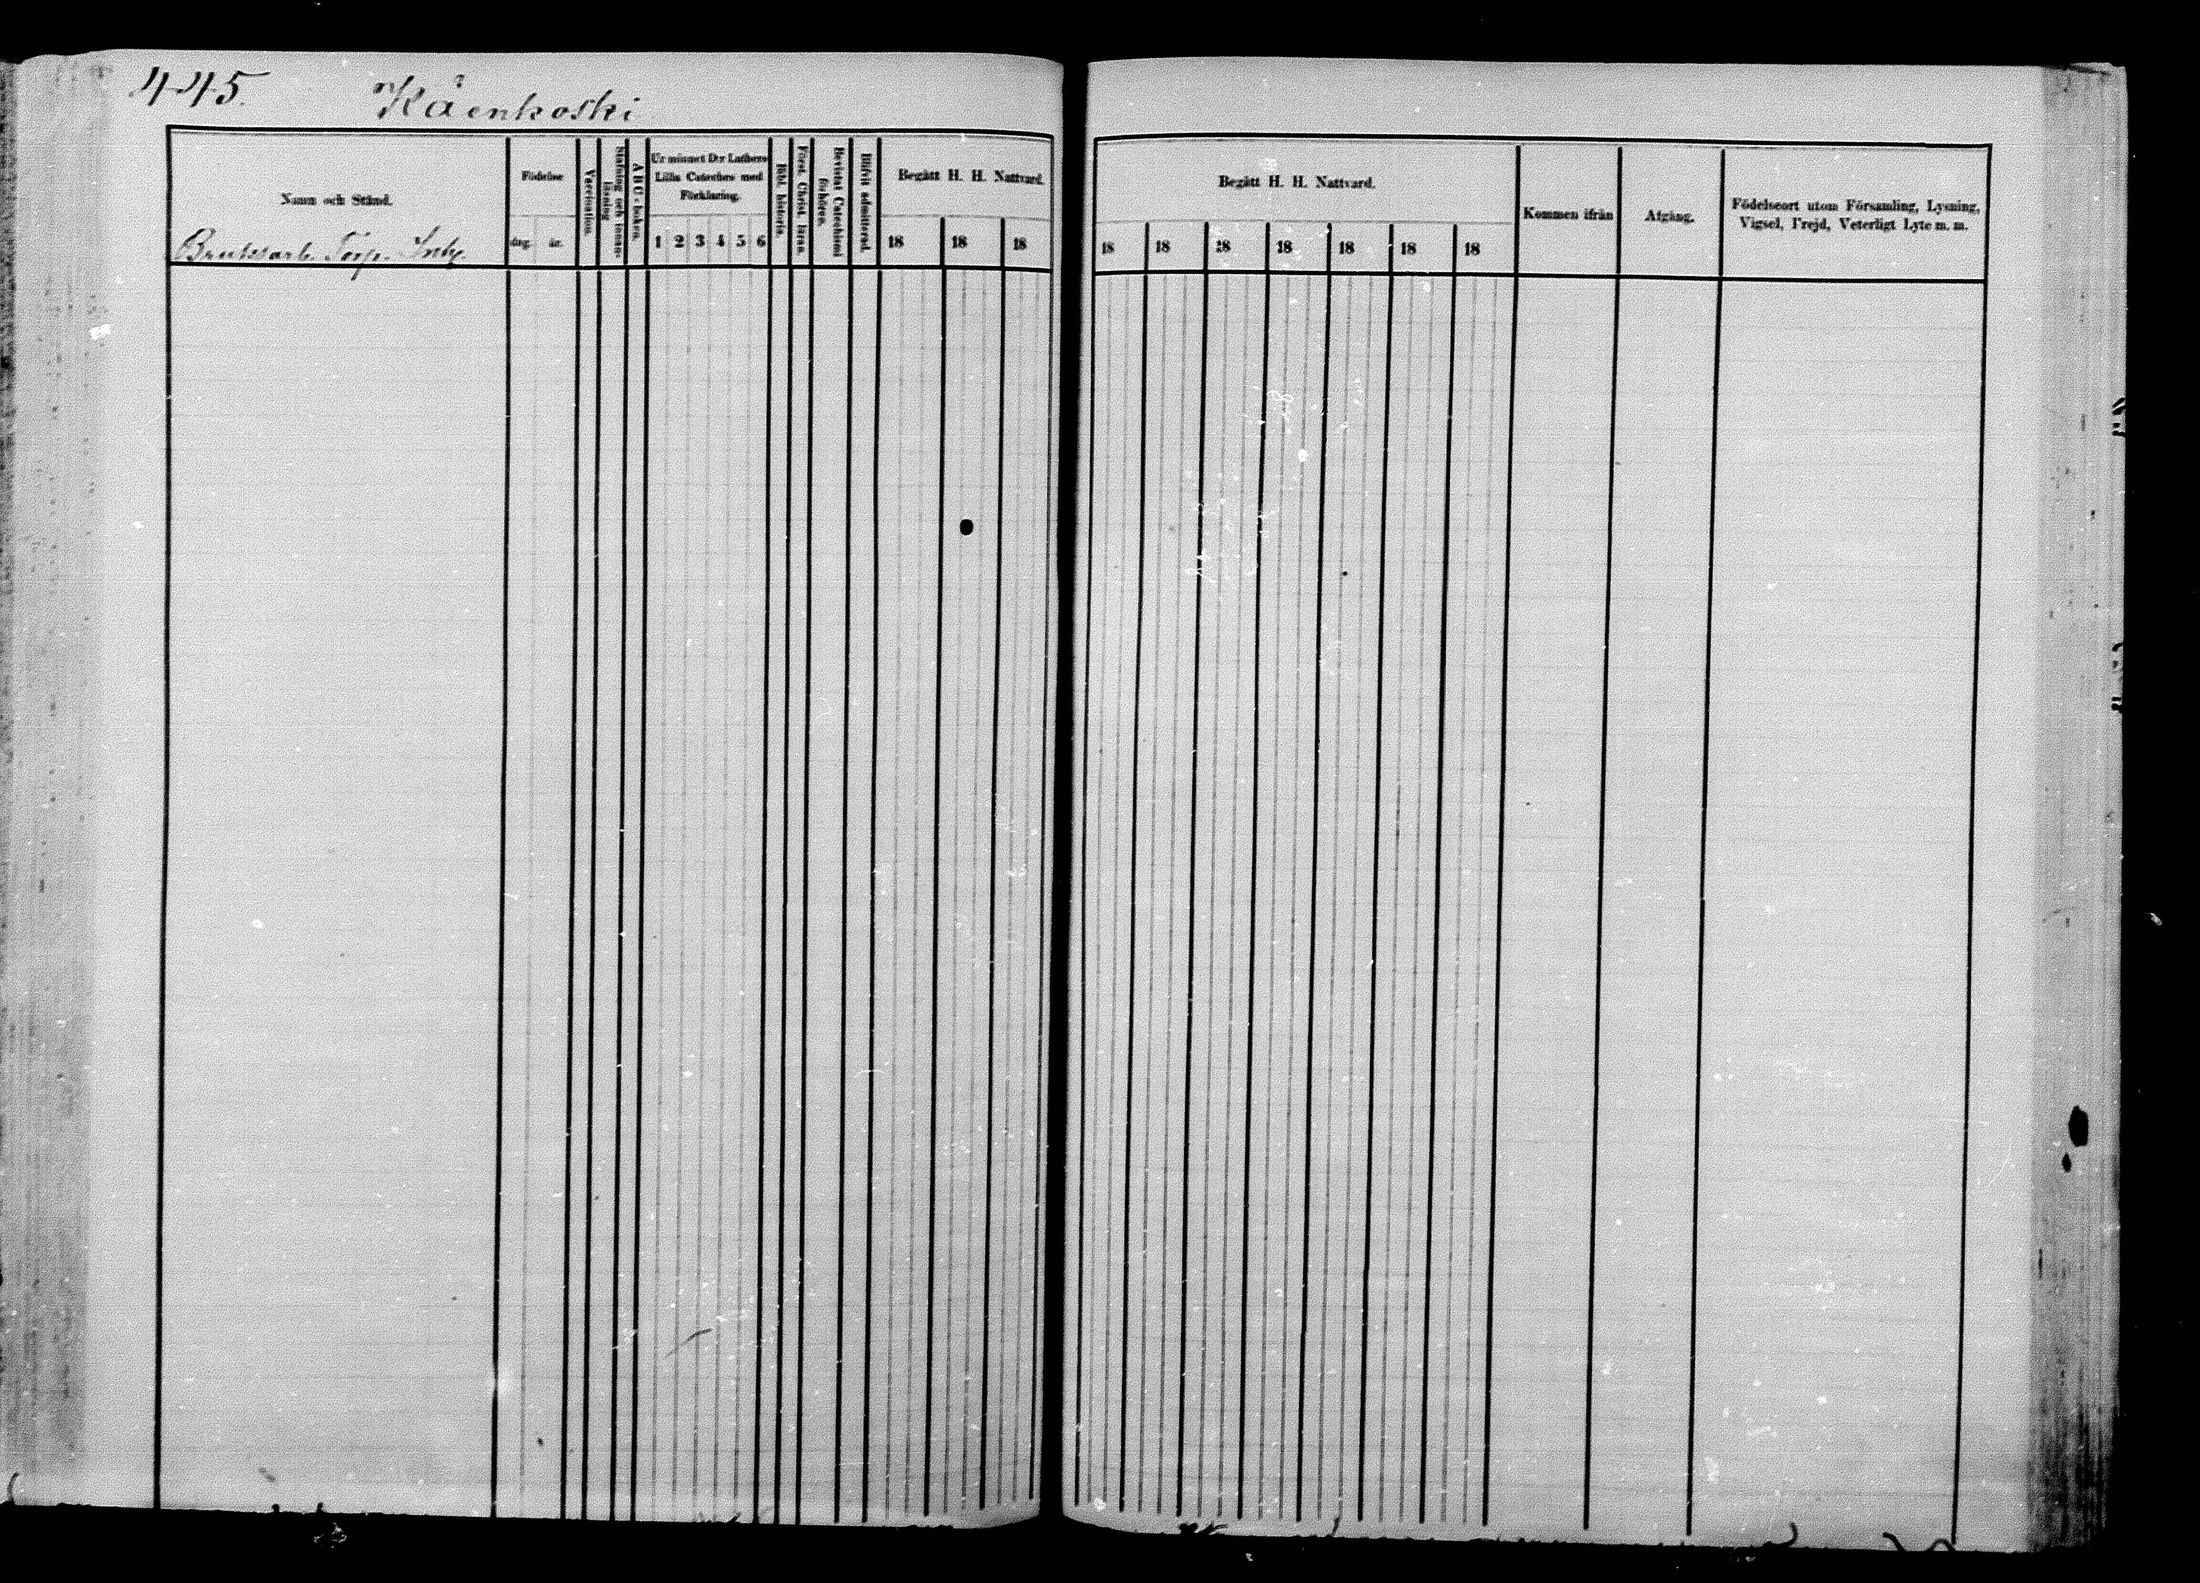 445.
Kåenkoski
Namn och Stånd.
Bruksarb. Torp. Inh.
Födelse
dag. år.
Vaccination.
Stafning och innan-
läsning
A B C - boken.
Ur minnet Der Luthers
Lilla Cateches med
Förklaring.
1 2 3 4 5 6
Bibl. historia.
Först. Christ. läran.
Bevistat Catechismi
förhören.
Blifvit admitterad.
Begått H. H. Nattvard.
18 18 18
Begått H. H. Nattvard.
18 18 18 18 18 18 18
Kommen ifrån
Afgång.
Födelseort utom Församling, Lysning,
Vigsel, Frejd, Veterligt Lyte m. m.